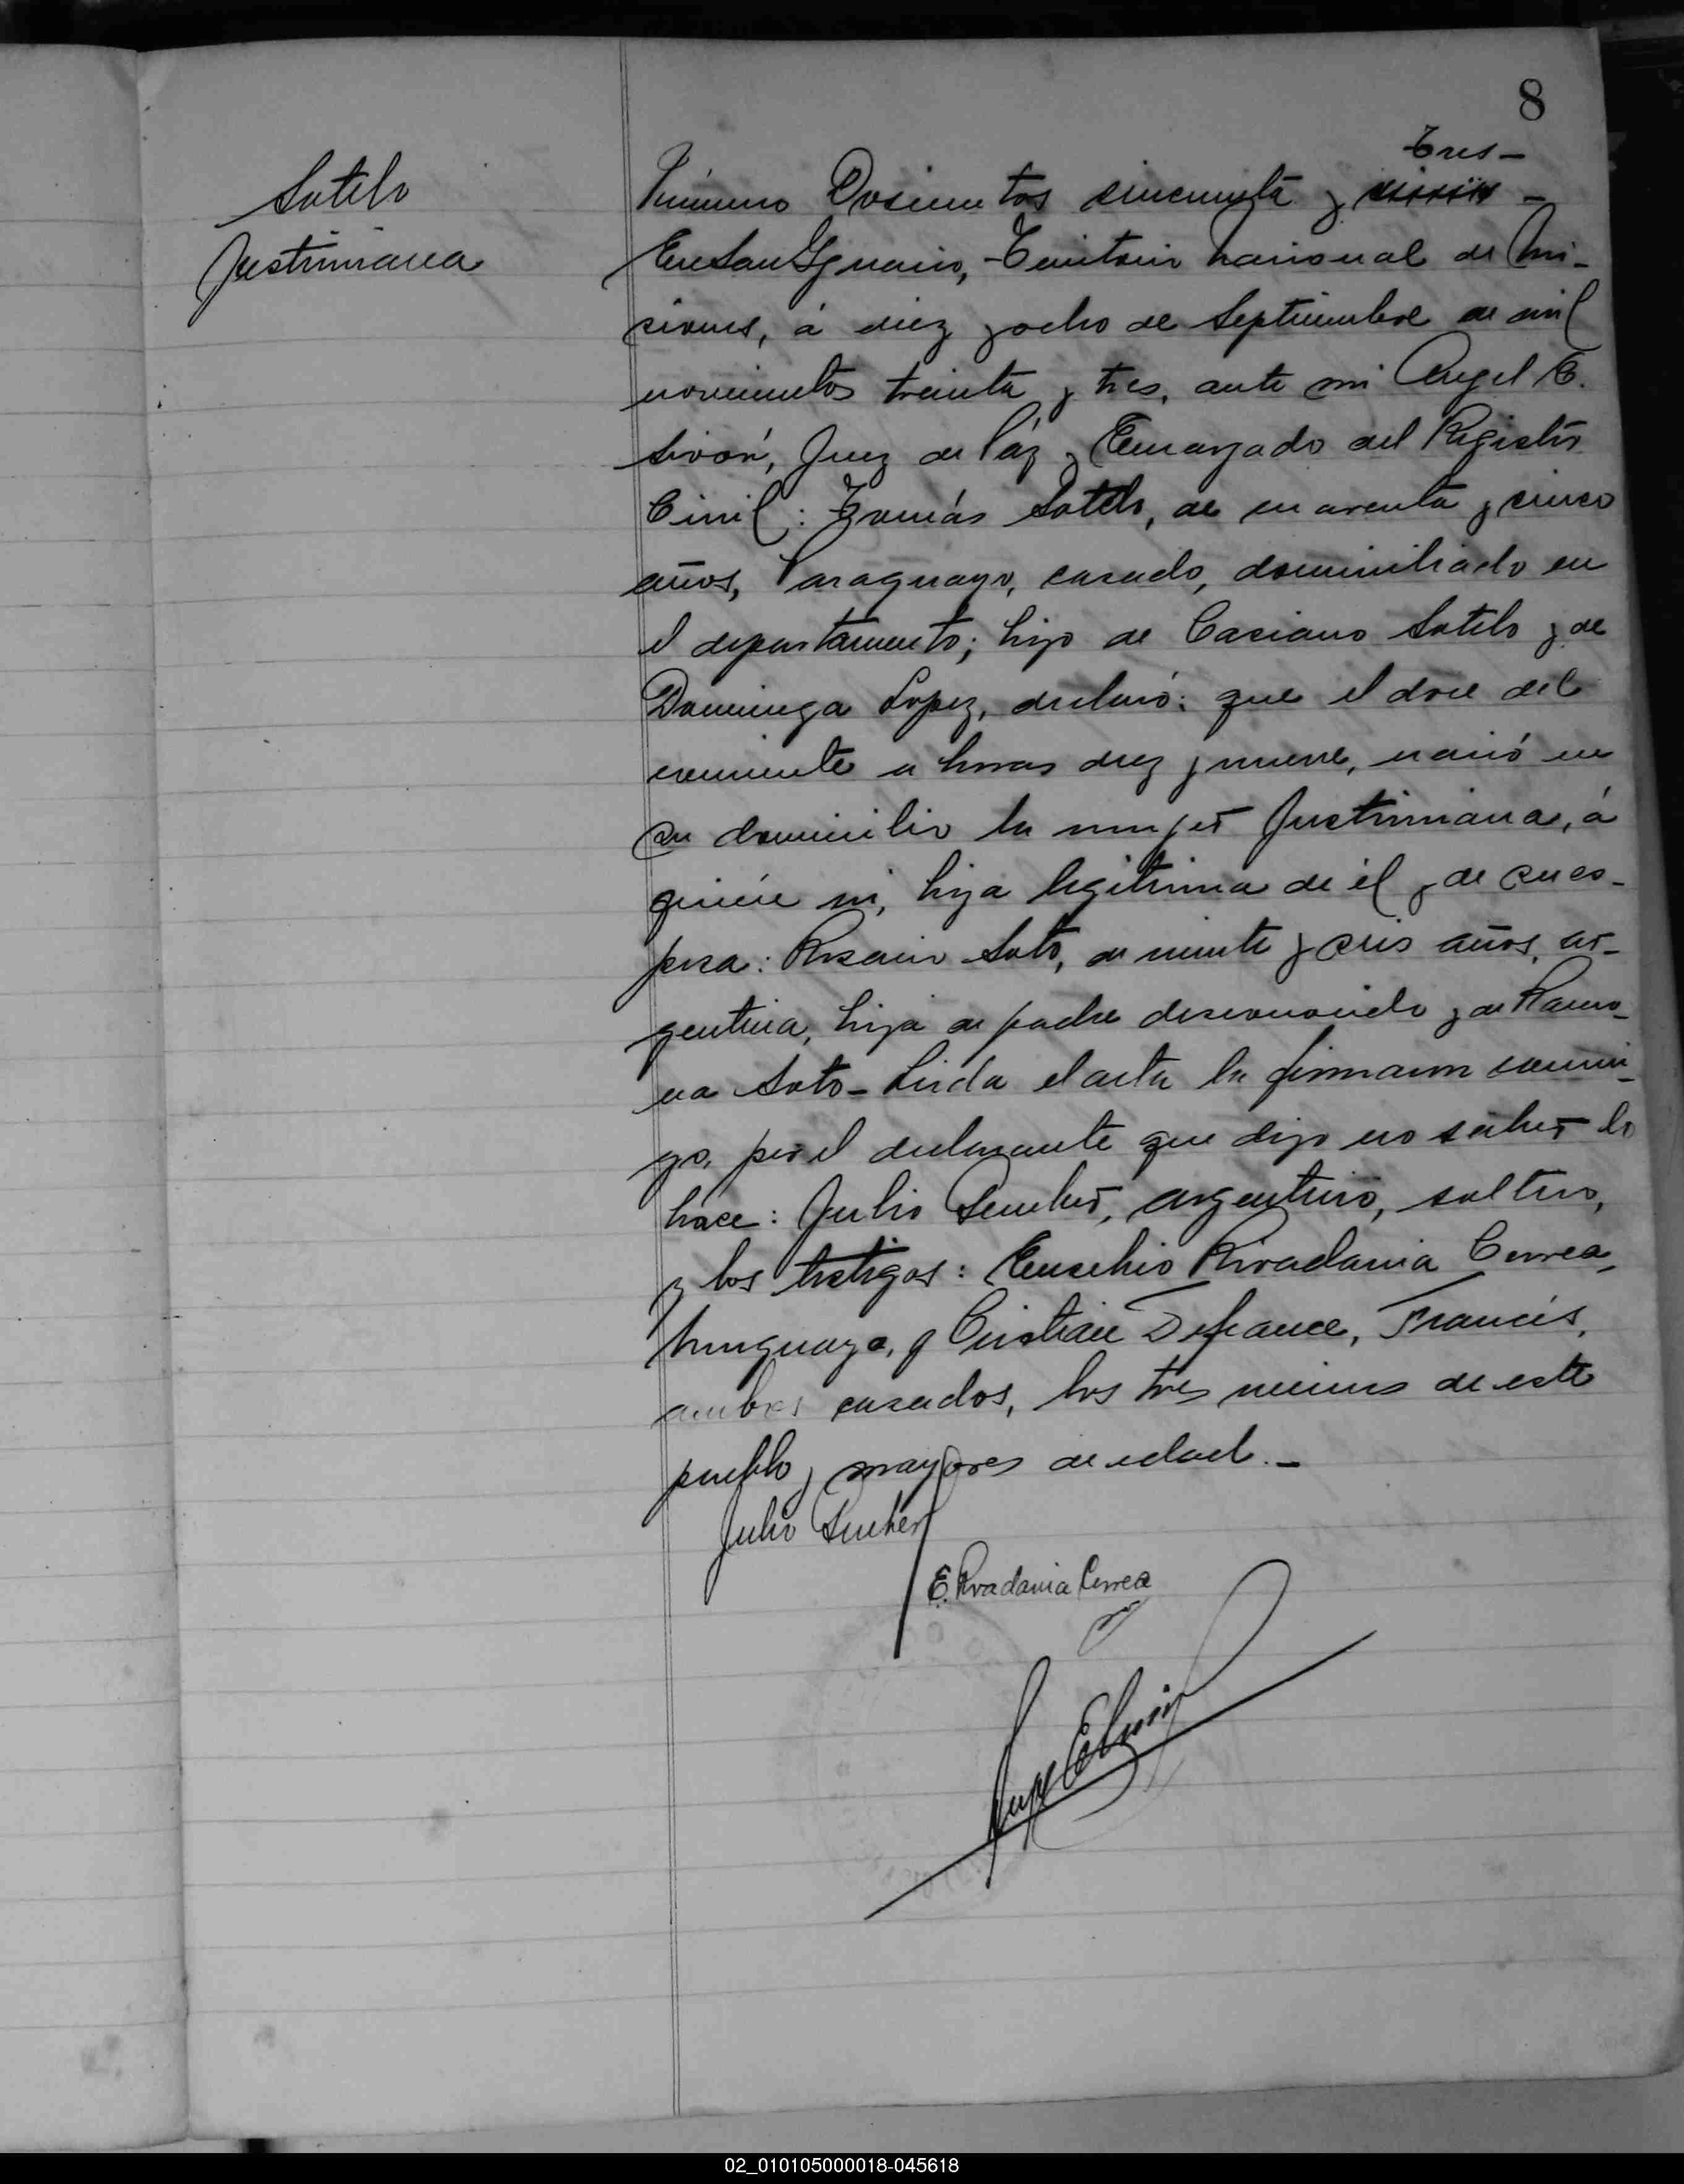 8
Sotelo
Justiniana
Tres-
Número Dosientos cincuenta y -
En San Ygnacio, Territorio Nacional de Mi-
siones, á diez y ocho de Septiembre de mil
novecientos treinta y tres, ante mi Angel E.
Juez de Páz y Encargado del Registro
Civil: Tomás Sotelo, de cuarenta y cinco
años, Paraguayo, casado, domiciliado en
el departamento; hijo de Casiano Sotelo y de
Dominga Lopez, declaró: que el doce del
corriente a horas diez y nueve, nació en
su domicilio la mujer Justiniana, á
quien vi, hija legitima de él y de su es-
posa: Rosario Soto, de veinte y seis años, ar-
gentina, hija de padre desconocido y de Ramo-
na Soto- Leida el acta la firmaron conmi-
go, por el declarante que dijo no saber lo
hace: Julio argentino, soltero,
y los testigos: Eusebio Rivadavia Correa,
Uruguayo, y Cristian Defrance, Francés,
ambos casados, los tres vecinos de este
pueblo y mayores de edad.-
Julio
E. Rivadavia Correa
02_010105000018-045618